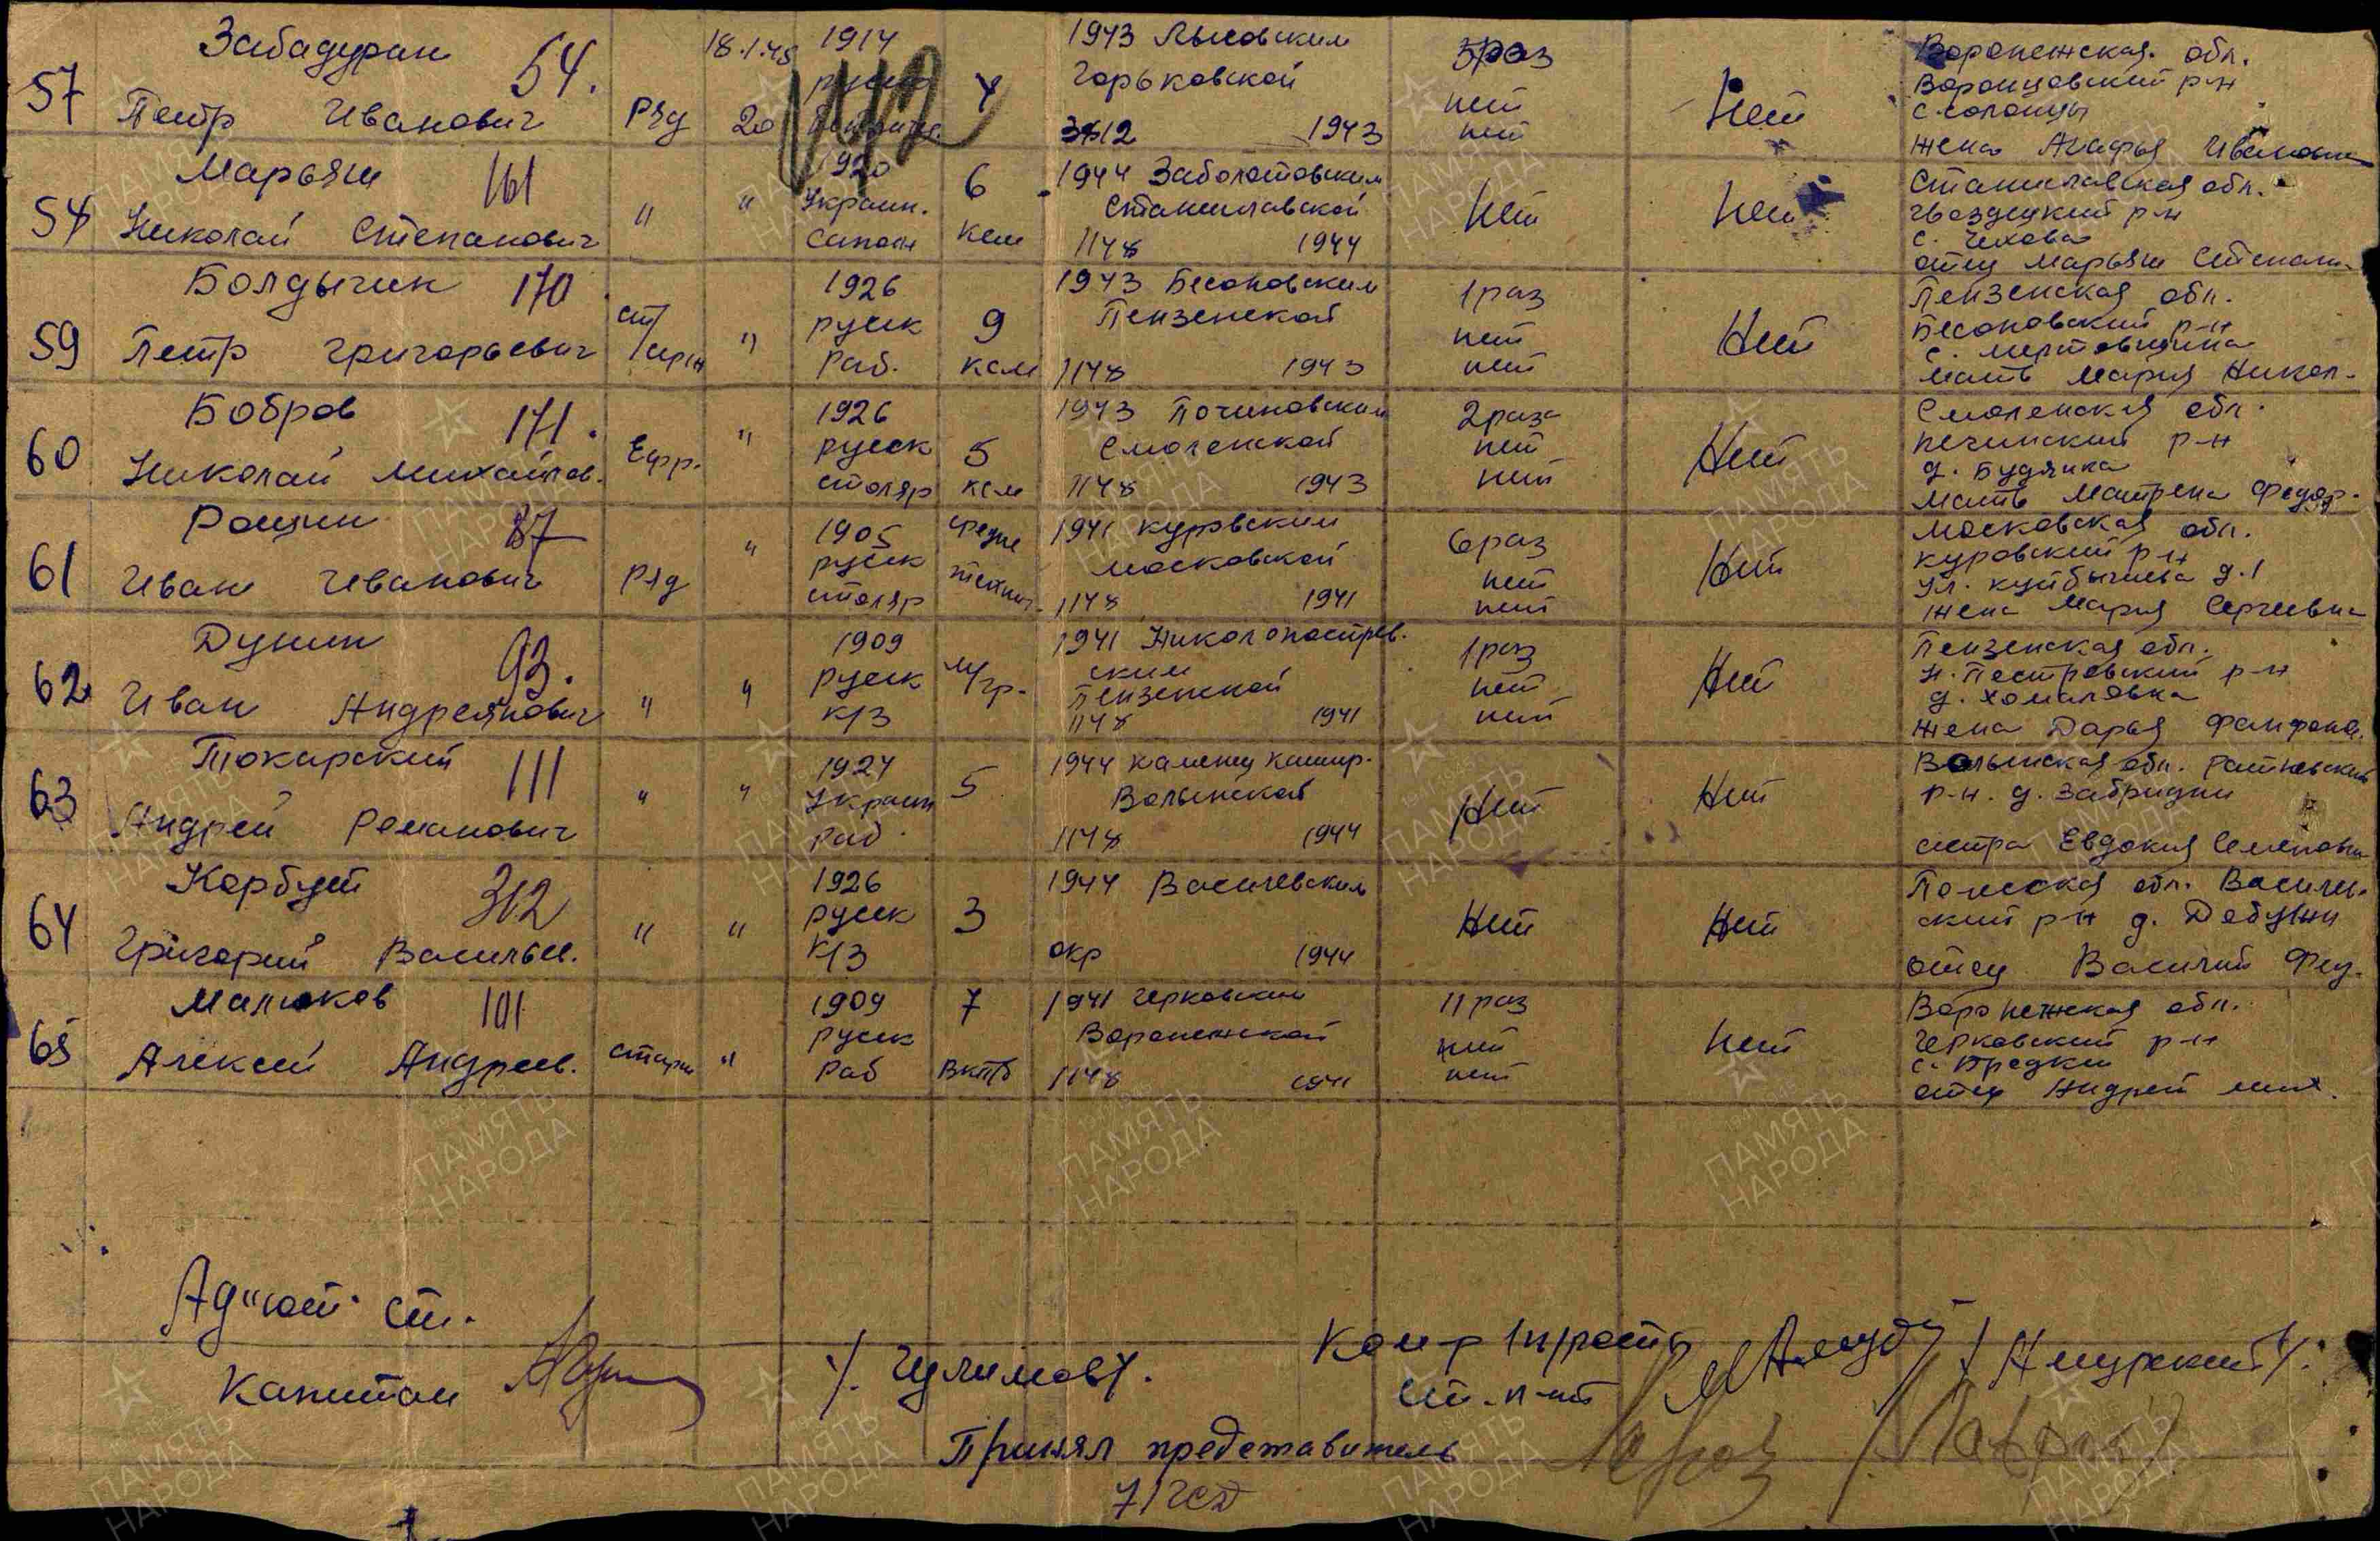 57
Забадуран 54.
Петр Иванович
Ряд
18.1.45
20
1914
4
1943 Лысковским
Горьковской
3612 1943
5 раз
нет
нет
Нет
Воронежская обл.
Воронцовский р-н
с. Солонцы
жена Агафья Ивановна
58
Марьяш 161
Николай Степанович
"
"
1920
Украин.
Сапожн
6
ксм
1944 Заболотовским
Станиславской
1148 1944
Нет
Нет
Станиславская обл.
Гвоздецкий р-н
с. Чехова
отец Марьяш Степан
59
Болдычин 170
Петр Григорьевич
ст/сержн
"
1926
русск
раб.
9
ксм
1943 Бесоновским
Пензенской
1148 1943
1 раз
нет
нет
Нет
Пензенская обл.
Бесоновский р-н
с. Мертовщина
мать Мария Никол.
60
Бобров 171.
Николай Михайлов.
Ефр.
"
1926
русск
столяр
5
ксм
1943 Починовским
Смоленской
1148 1943
2 раза
нет
нет
Нет
Смоленская обл.
печинский р-н
д. Будянка
мать Матрена Федор.
61
Рощин 87
Иван Иванович
Ряд
"
1905
русск
столяр
средне
технич.
1941 Куровским
Московской
1148 1941
6 раз
нет
нет
Нет
Московская обл.
Куровский р-н
ул. Куйбышева д. 1
жена Мария Сергеевна
62
Дунин 93.
Иван Андреянович
"
"
1909
русск
к/з
м/гр.
1941 Николопестров.
ским
Пензенской
1148 1941
1 раз
нет
нет
Нет
Пензенская обл.
Н. Пестровский р-н
д. Хомяловка
жена Дарья
63
Токарский 111
Андрей Романович
"
"
1924
Украин
раб.
5
1944 Камень Кашир.
Волынской
1148 1944
Нет
Нет
Волынская обл. Ратновский
р-н. д. Забридки
сестра Евдокия Семеновн
64
Корбут 312
Григорий Васильев.
"
"
1926
русск
к/з
3
1944 Василевским
окр 1944
Нет
Нет
Полесская обл. Василев-
ский р-н д. Добуни
отец Василий Фед.
65
Малюков 101
Алексей Андреев.
старш
"
1909
русск
раб
7
ВКПб
1941 Черковским
Воронежской
1148 1941
11 раз
нет
нет
Нет
Воронежская обл.
Черковский р-н
с. Бредки
отец Андрей мих.
Ад"ют. ст.
Капитан /. Чулимов/.
Ком-р 1 п/роты
ст. л-нт /Амурский/.
Принял представитель
71 ГСД
ПАМЯТЬ
НАРОДА